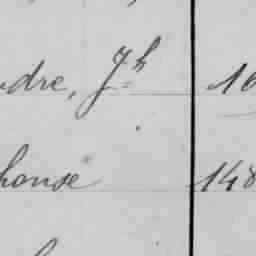 ndre, Jh 16
honse 148